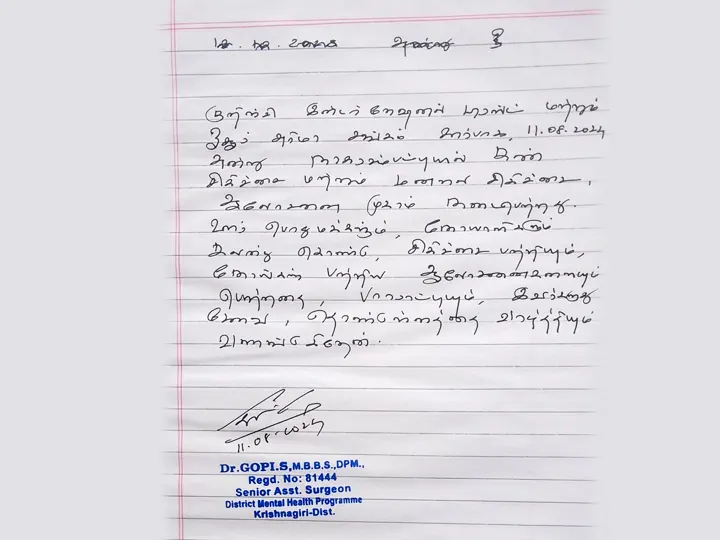 குறிஞ்சி இன்டர்நேஷனல் டிரஸ்ட் மற்றும்
தர்மா சங்கம் சார்பாக, 11.08.2024
அன்று நாகரசம்பட்டியில் கண்
சிகிச்சை மற்றும் மனநல சிகிச்சை,
ஆலோசனை முகாம் நடைபெற்றது.
ஊர் பொதுமக்களும், நோயாளிகளும்
கலந்து கொண்டு, சிகிச்சை பற்றியும்,
நோய்கள் பற்றிய ஆலோசனைகளையும்
பெற்றதை, பாராட்டியும், இவர்களது
சேவை, தொண்டுள்ளத்தை வாழ்த்தியும்
வணங்குகிறேன்.
11.08.2024
Dr.GOPI.S,M.B.B.S.,DPM.,
Regd. No: 81444
Senior Asst. Surgeon
District Mental Health Programme
Krishnagiri-Dist.